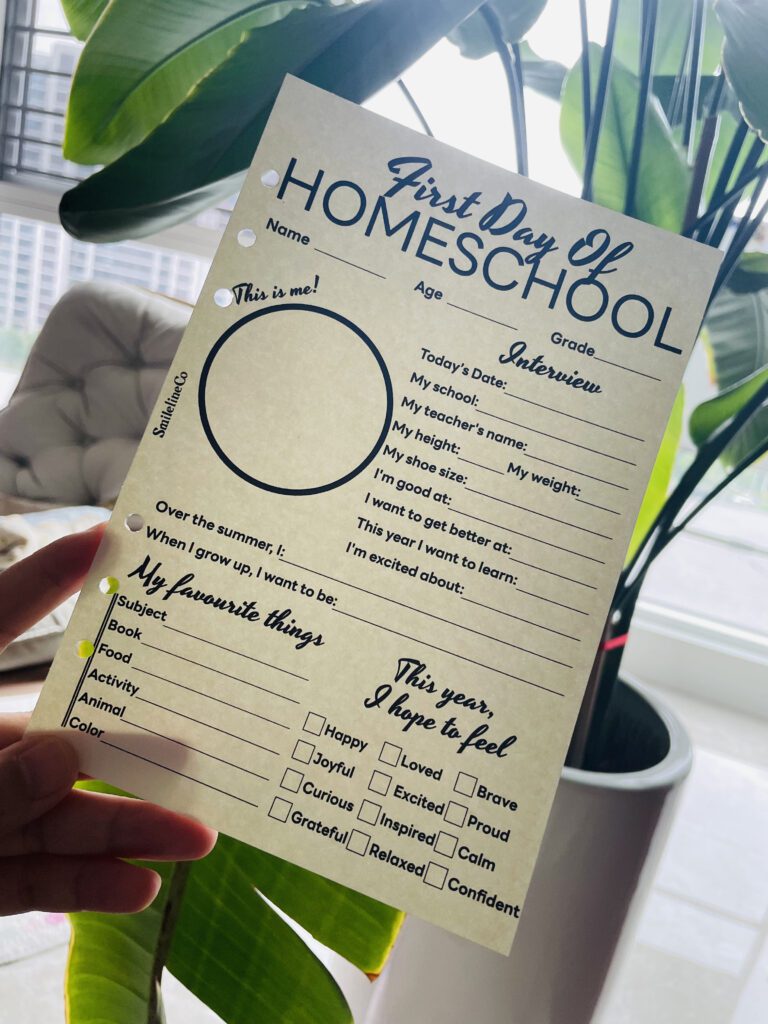 First Day Of
HOMESCHOOL
Name
Age
Grade
This is me!
SmilelineCo
Interview
Today's Date:
My school:
My teacher's name:
My height:
My weight:
My shoe size:
I'm good at:
I want to get better at:
This year I want to learn:
I'm excited about:
Over the summer, I:
When I grow up, I want to be:
My favourite things
Subject
Book
Food
Activity
Animal
Color
This year,
I hope to feel
Happy Loved Brave
Joyful Excited Proud
Curious Inspired Calm
Grateful Relaxed Confident